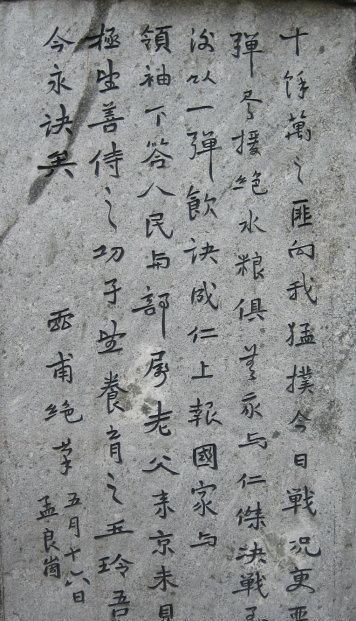 十餘萬之匪向我猛撲今日戰況更惡
彈尽援絕水粮俱無我与仁傑決戰至
後以一彈飲訣成仁上報國家与
領袖下答人民与部屬老父来京未見
極望善待之幼子望養育之玉玲吾
今永訣矣
灵甫絕筆
五月十六日
孟良崮